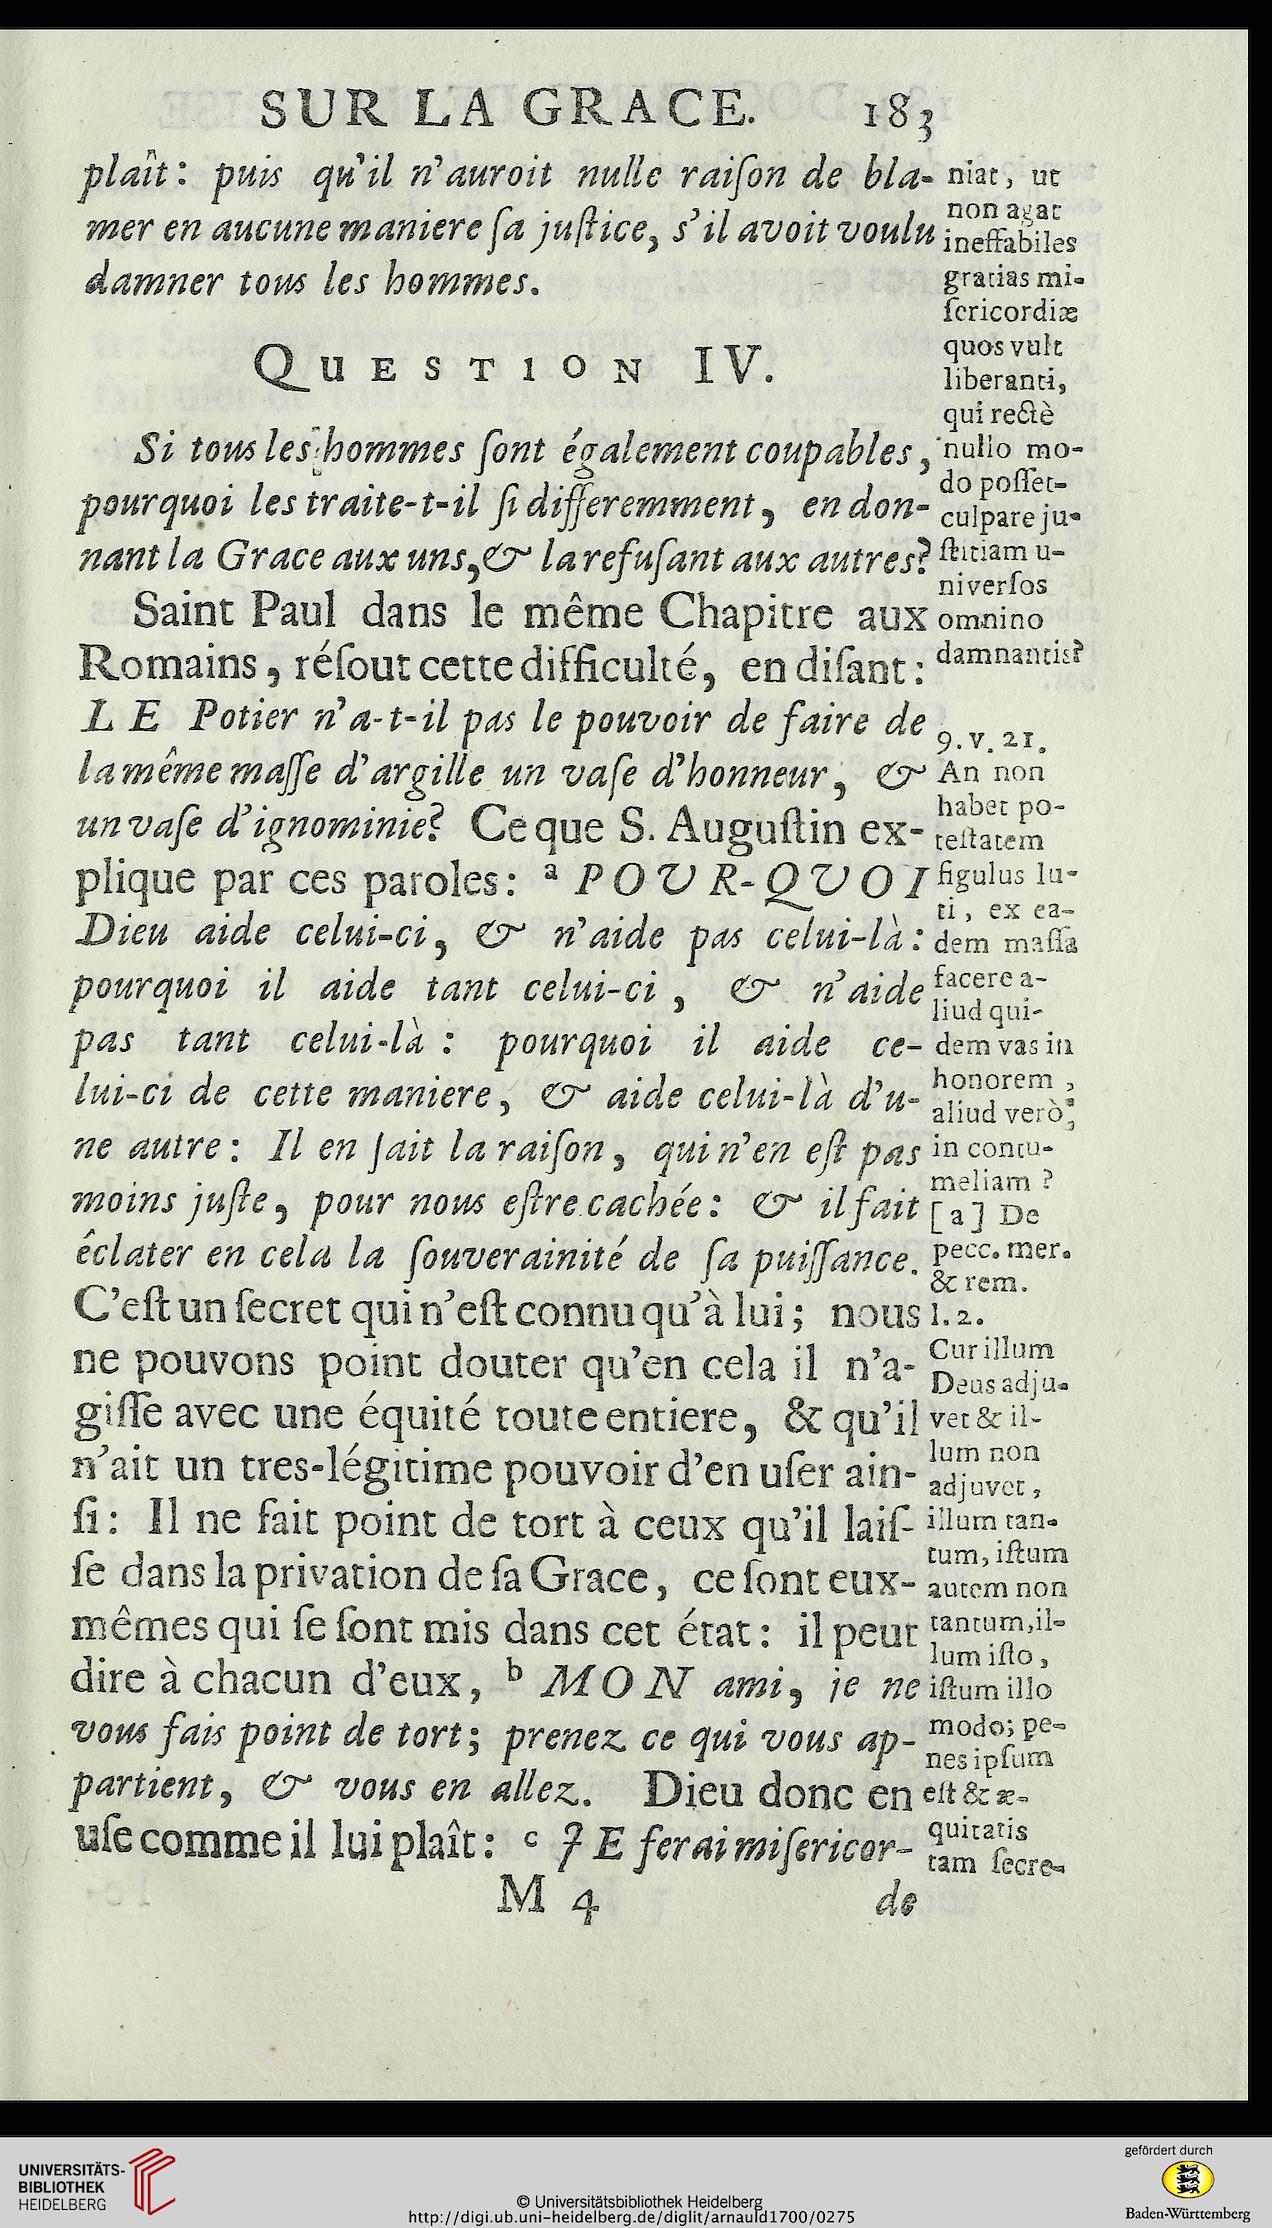 SUR LA GRACE. 183
plaît: puis qu'il n'auroit nulle raiſon de bla-
mer en aucune maniere ſa juſtice, s'il avoit voulu
damner tous les hommes.
QUESTION IV.
Si tous les hommes ſont également coupables,
pourquoi les traite-t-il ſi differemment, en don-
nant la Grace aux uns, & la refuſant aux autres?
Saint Paul dans le même Chapitre aux
Romains, réſout cette difficulté, en diſant:
LE Potier n'a-t-il pas le pouvoir de faire de
la même maſſe d'argille un vaſe d'honneur, &
un vaſe d'ignominie? Ce que S. Auguſtin ex-
plique par ces paroles: a POUR-QUOI
Dieu aide celui-ci, & n'aide pas celui-là:
pourquoi il aide tant celui-ci, & n'aide
pas tant celui-là: pourquoi il aide ce-
lui-ci de cette maniere, & aide celui-là d'u-
ne autre: Il en ſait la raiſon, qui n'en eſt pas
moins juſte, pour nous eſtre cachée: & il fait
éclater en cela la ſouverainité de ſa puiſſance.
C'eſt un ſecret qui n'eſt connu qu'à lui; nous
ne pouvons point douter qu'en cela il n'a-
giſſe avec une équité toute entiere, & qu'il
n'ait un tres-légitime pouvoir d'en uſer ain-
ſi: Il ne fait point de tort à ceux qu'il laiſ-
ſe dans la privation de ſa Grace, ce ſont eux-
mêmes qui ſe ſont mis dans cet état: il peut
dire à chacun d'eux, b MON ami, je ne
vous fais point de tort; prenez ce qui vous ap-
partient, & vous en allez. Dieu donc en
uſe comme il lui plaît: c JE ferai miſericor-
M 4 de
niat, ut
non agat
ineffabiles
gratias mi-
ſericordiæ
quos vult
liberanti,
qui rectè
nullo mo-
do poſſet-
culpare ju-
ſtitiam u-
niverſos
omnino
damnantis?
9. v. 21.
An non
habet po-
teſtatem
figulus lu-
ti, ex ea-
dem maſſa
facere a-
liud qui-
dem vas in
honorem,
aliud verò,
in contu-
meliam?
[a] De
pecc. mer.
& rem.
l. 2.
Cur illum
Deus adju-
vet & il-
lum non
adjuvet,
illum tan-
tum, iſtum
autem non
tantum, il-
lum iſto,
iſtum illo
modo; pe-
nes ipſum
eſt & æ-
quitatis
tam ſecre-
UNIVERSITÄTS-
BIBLIOTHEK
HEIDELBERG
© Universitätsbibliothek Heidelberg
http://digi.ub.uni-heidelberg.de/diglit/arnauld1700/0275
gefördert durch
Baden-Württemberg